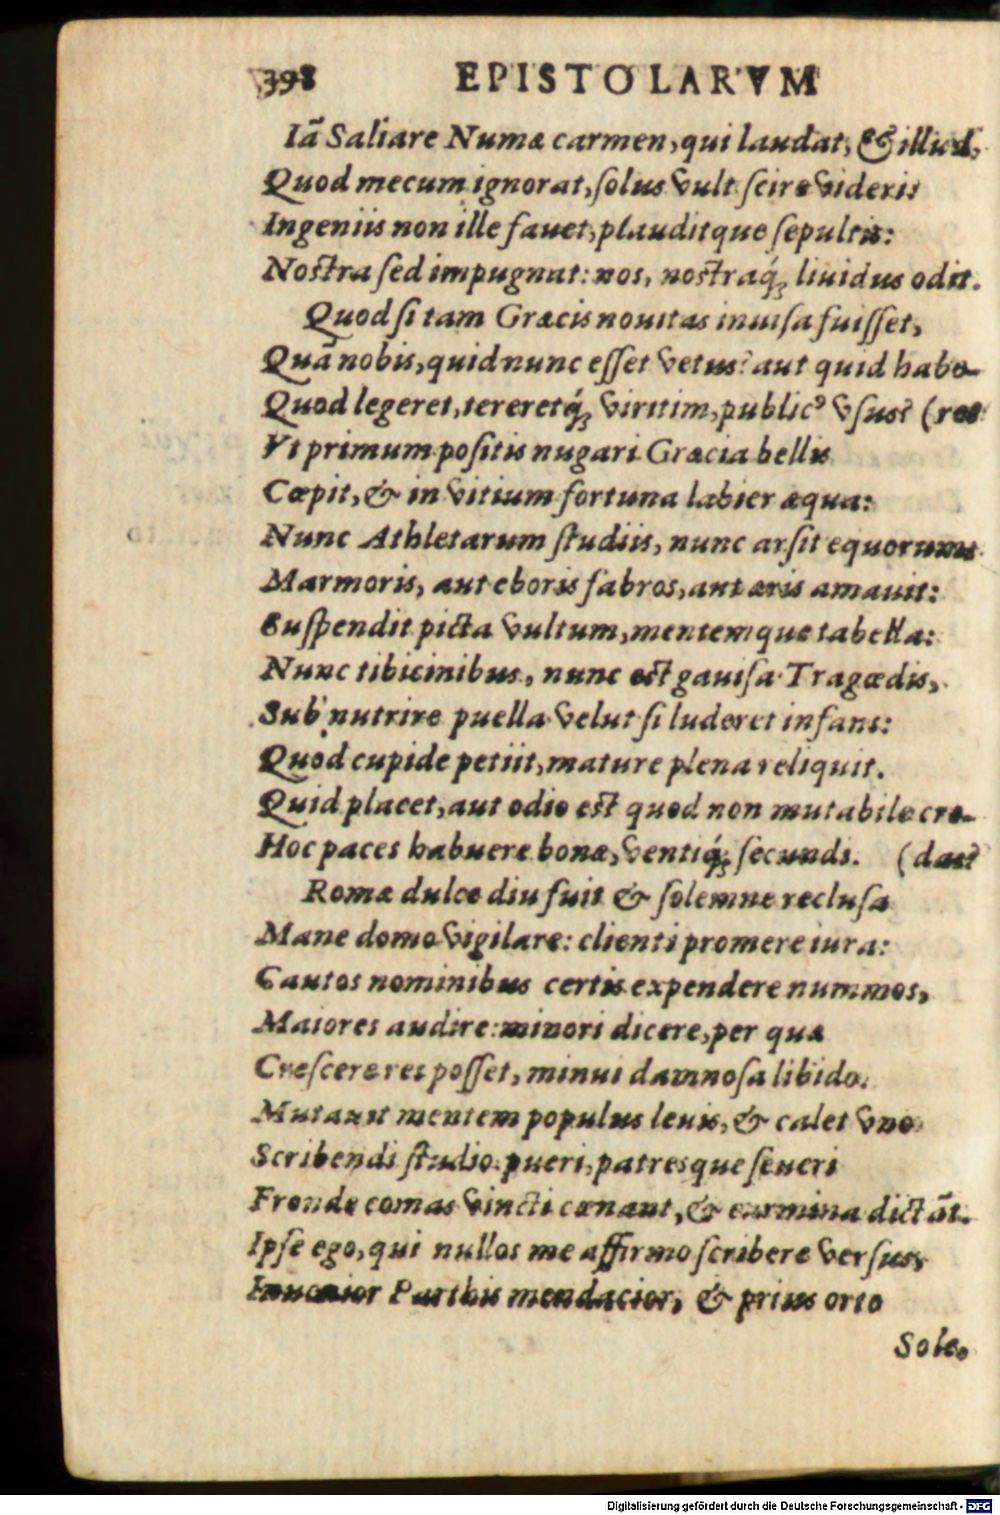 398 EPISTOLARVM
Iā Saliare Numæ carmen, qui laudat, & illud,
Quod mecum ignorat, ſolus vult ſcire videri:
Ingeniis non ille fauet, plauditque ſepultis:
Noſtra ſed impugnat: nos, noſtraq́; liuidus odit.
Quod ſi tam Græcis nouitas inuiſa fuiſſet,
Quā nobis, quid nunc eſſet vetus? aut quid habe-
Quod legeret, tereretq́; viritim, publicꝰ vſus? (ret
Vt primum poſitis nugari Græcia bellis
Cœpit, & in vitium fortuna labier æqua:
Nunc Athletarum ſtudiis, nunc arſit equorum:
Marmoris, aut eboris fabros, aut æris amauit:
Suſpendit picta vultum, mentemque tabella:
Nunc tibicinibus, nunc eſt gauiſa Tragœdis,
Sub nutrire puella velut ſi luderet infans:
Quod cupide petiit, mature plena reliquit.
Quid placet, aut odio eſt quod non mutabile cre-
Hoc paces habuere bonæ, ventiq́; ſecundi. (das?
Romæ dulce diu fuit & ſolemne recluſa
Mane domo vigilare: clienti promere iura:
Cautos nominibus certis expendere nummos,
Maiores audire: minori dicere, per quæ
Creſcere res poſſet, minui damnoſa libido.
Mutauit mentem populus leuis, & calet vno
Scribendi ſtudio. pueri, patresque ſeueri
Fronde comas vincti cœnant, & carmina dictāt.
Ipſe ego, qui nullos me affirmo ſcribere verſus,
Inuenior Parthis mendacior, & prius orto
Sole.
Digitalisierung gefördert durch die Deutsche Forschungsgemeinschaft - DFG